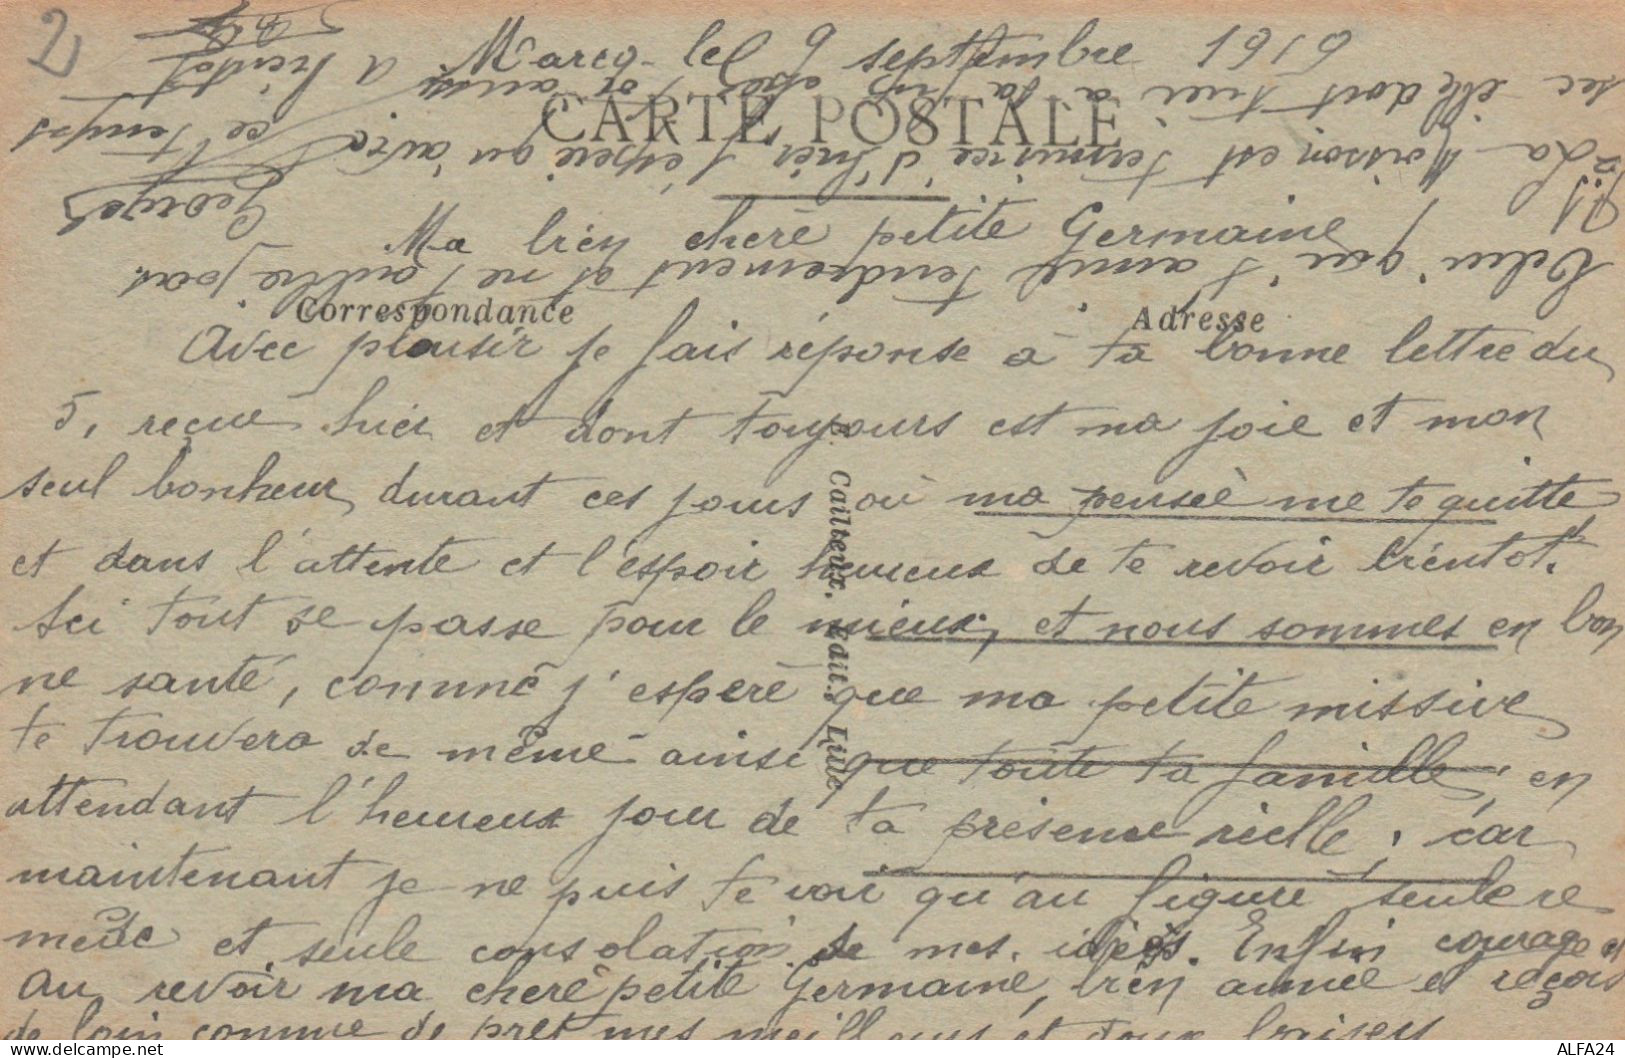 2
Marcq - le 9 septembre 1916
CARTE POSTALE
Ma bien chère petite Germaine
Correspondance
Adresse
Avec plaisir je fais réponse à ta bonne lettre du
5, reçue hier et dont toujours est ma joie et mon
seul bonheur durant ces jours où ma pensée me te quitte
et dans l'attente et l'espoir heureux de te revoir bientot.
Ici tout se passe pour le mieux, et nous sommes en bon
ne santé, comme j'espère que ma petite missive
te trouvera de même ainsi que toute ta famille, en
attendant l'heureux jour de ta présence réelle, car
maintenant je ne puis te voir qu'au figuré seul re
mède et seule consolation de mes idées. Enfin courage et
au revoir ma chère petite Germaine, bien aimée et reçois
de loin comme de près mes meilleurs et doux baisers
Celui qui t'aime tendrement et ne t'oublie pas.
Georges
La Moisson est terminée d'hier j'espère qu'avec ce temps
sec elle doit
aussi
à bientot
E. Cailteux, Edit. Lille
ALFA24